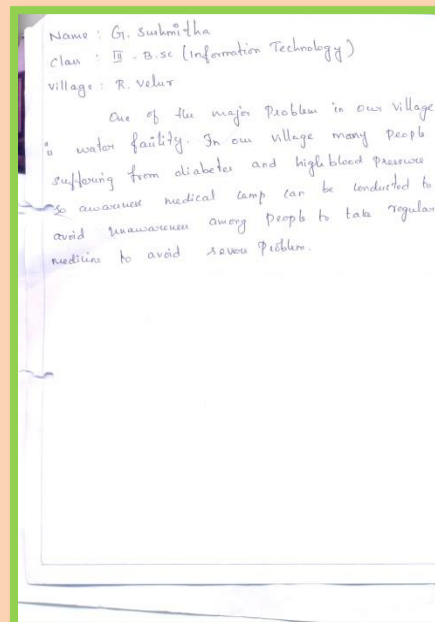 Name : G. Sushmitha
Class : III - B.sc (Information Technology)
Village : R. Velur
One of the major Problem in our village
is water faility. In our village many People
suffering from diabetes and high blood pressure
so awarness medical camp can be conducted to
avoid unawarness among people to take regular
medicine to avoid severe Problem.